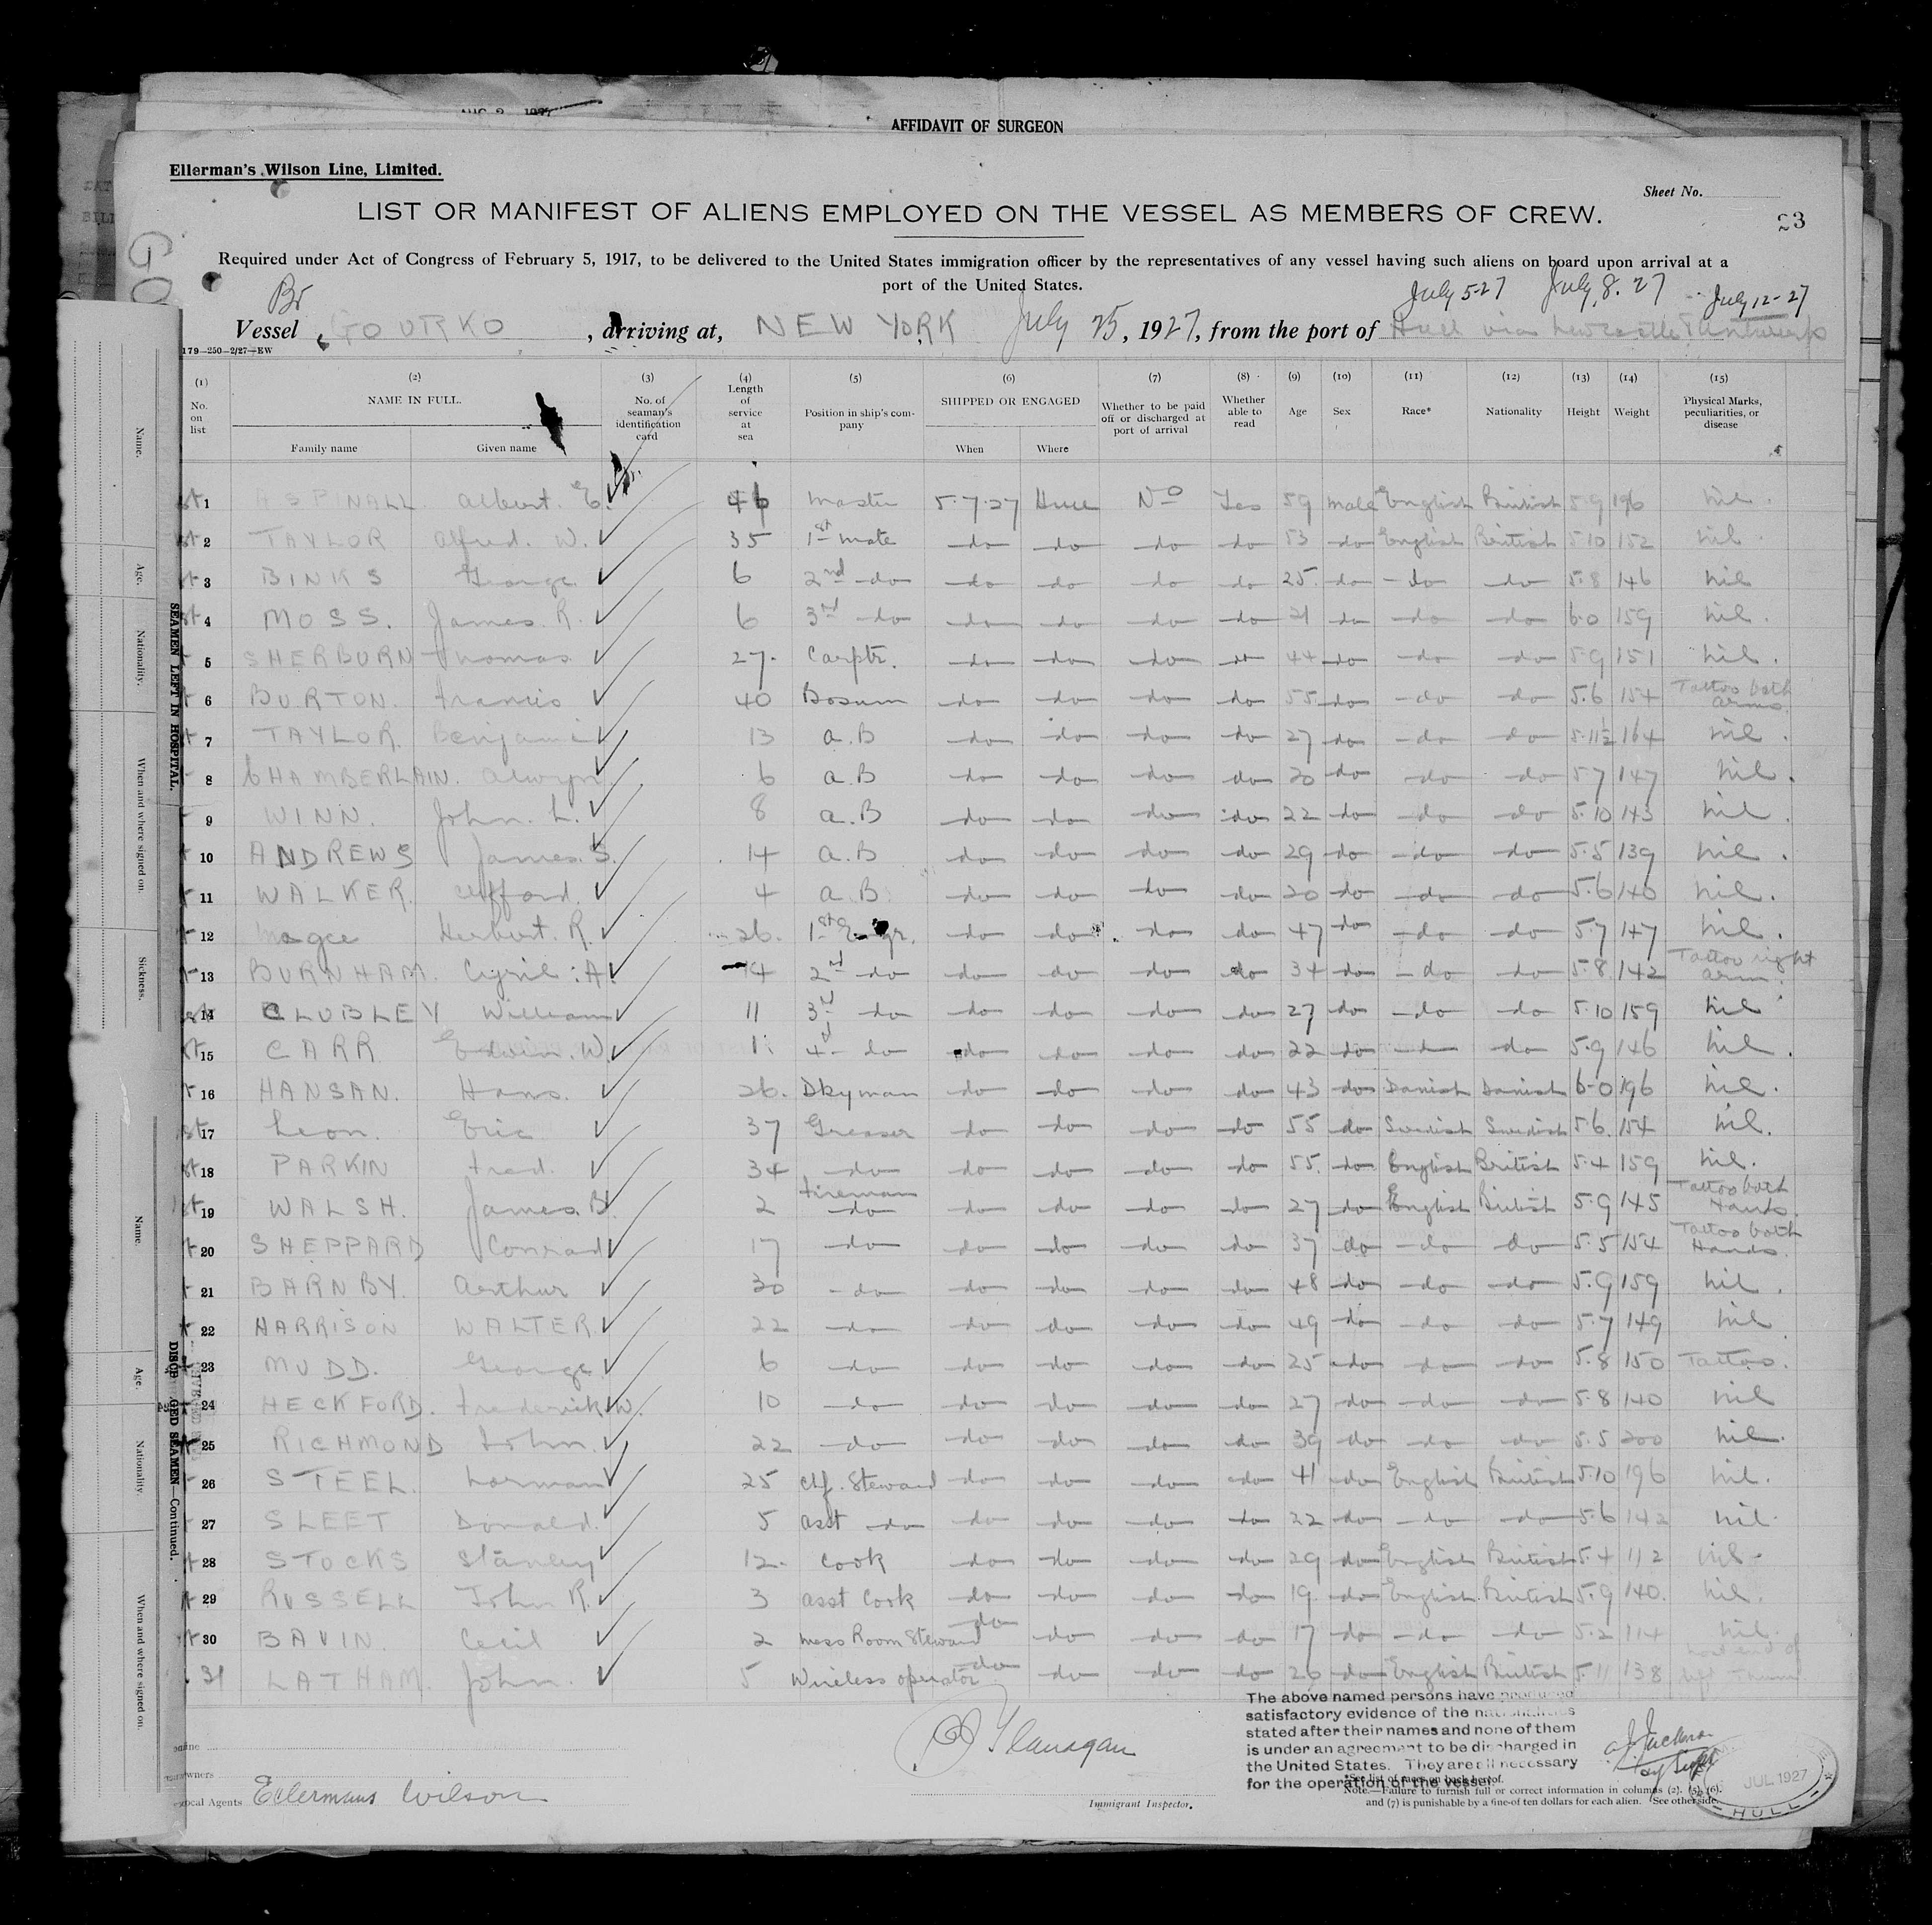 AFFIDAVIT OF SURGEON
Ellerman's Wilson Line, Limited.
Sheet No.
LIST OR MANIFEST OF ALIENS EMPLOYED ON THE VESSEL AS MEMBERS OF CREW.
23
Required under Act of Congress of February 5, 1917, to be delivered to the United States immigration officer by the representatives of any vessel having such aliens on board upon arrival at a
port of the United States.
Br July 5-27 July 8. 27 July 12-27
Vessel GOURKO, arriving at, NEW YORK July 25, 1927, from the port of Hull via Newcastle & Antwerp
179—250—2/27—EW
(1) No. on list (2) NAME IN FULL. Family name Given name (3) No. of seaman's identification card (4) Length of service at sea (5) Position in ship's company (6) SHIPPED OR ENGAGED When Where (7) Whether to be paid off or discharged at port of arrival (8) Whether able to read (9) Age (10) Sex (11) Race* (12) Nationality (13) Height (14) Weight (15) Physical Marks, peculiarities, or disease
1 ASPINALL. Albert. E. 46 Master 5.7.27 Hull No Yes 59 male English British 5.9 196 nil.
2 TAYLOR Alfred. W. 35 1st mate do do do do 53 do English British 5.10 152 nil.
3 BINKS George 6 2nd do do do do do 25 do do do 5.8 146 nil
4 MOSS. James. R. 6 3rd do do do do do 21 do do do 6.0 159 nil.
5 SHERBURN Thomas 27. Carptr. do do do do 44 do do do 5.9 151 nil.
6 BURTON. Francis 40 Bosun do do do do 55 do do do 5.6 154 Tattoo both arms.
7 TAYLOR. Benjami 13 A.B do do do do 27 do do do 5.11½ 164 nil.
8 CHAMBERLAIN. Alwyn 6 A.B do do do do 20 do do do 5.7 147 nil.
9 WINN. John. L. 8 A.B do do do do 22 do do do 5.10 143 nil.
10 ANDREWS James. S. 14 A.B do do do do 29 do do do 5.5 139 nil.
11 WALKER. Clifford. 4 A.B do do do do 20 do do do 5.6 140 nil.
12 Magee Herbert. R. 26. 1st Engr. do do do do 47 do do do 5.7 147 nil.
13 BURNHAM. Cyril. A. 14 2nd do do do do do 34 do do do 5.8 142 Tattoo right arm.
14 CLUBLEY William 11 3rd do do do do do 27 do do do 5.10 159 nil
15 CARR Edwin. W. 1 4 do do do do do 22 do do do 5.9 146 nil.
16 HANSAN. Hans. 26. Dkyman do do do do 43 do Danish Danish 6-0 196 nil.
17 Leon. Eric 37 Greaser do do do do 55 do Swedish Swedish 5.6. 154 nil.
18 PARKIN Fred. 34 do do do do do 55. do English British 5.4 159 nil.
19 WALSH. James. B. 2 Fireman do do do do do 27 do English British 5.9 145 Tattoo both Hands.
20 SHEPPARD Conrad 17 do do do do do 37 do do do 5.5 154 Tattoo both Hands.
21 BARNBY. Arthur 30 do do do do do 48 do do do 5.9 159 nil.
22 HARRISON WALTER. 22 do do do do do 49 do do do 5.7 149 nil
23 MUDD. George 6 do do do do do 25 do do do 5.8 150 Tattoo.
24 HECKFORD. Frederick W. 10 do do do do do 27 do do do 5.8 140 nil
25 RICHMOND John. 22 do do do do do 39 do do do 5.5 200 nil.
26 STEEL. Norman 25 Chf. Steward do do do do 41 do English British 5.10 196 nil.
27 SLEET Donald. 5 Asst do do do do do 22 do do do 5.6 142 nil.
28 STOCKS Stanley 12. Cook do do do do 29 do English British 5.4 112 nil
29 RUSSELL John R. 3 Asst Cook do do do do 19 do English British 5.9 140. nil.
30 BAVIN. Cecil 2 Mess Room Steward do do do do 17 do do do 5.2 114 nil.
31 LATHAM. John. 5 Wireless operator do do do do 26 do English British 5.11 138 end of left Thumb
The above named persons have produced
satisfactory evidence of the nationalities
stated after their names and none of them
is under an agreement to be discharged in
the United States. They are all necessary
for the operation of the vessel.
Flanagan
Immigrant Inspector.
*See list of races on back hereof.
Note.—Failure to furnish full or correct information in columns (2), (5), (6),
and (7) is punishable by a fine of ten dollars for each alien. See other side.
JUL 1927
HULL
Owners
Local Agents Ellermans Wilson
Name.
Age.
Nationality.
When and where signed on.
Sickness.
SEAMEN LEFT IN HOSPITAL.
Name.
Age.
Nationality.
When and where signed on.
GED SEAMEN—Continued.